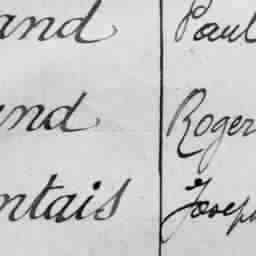 and Paul
and Roger
ntais Joseph